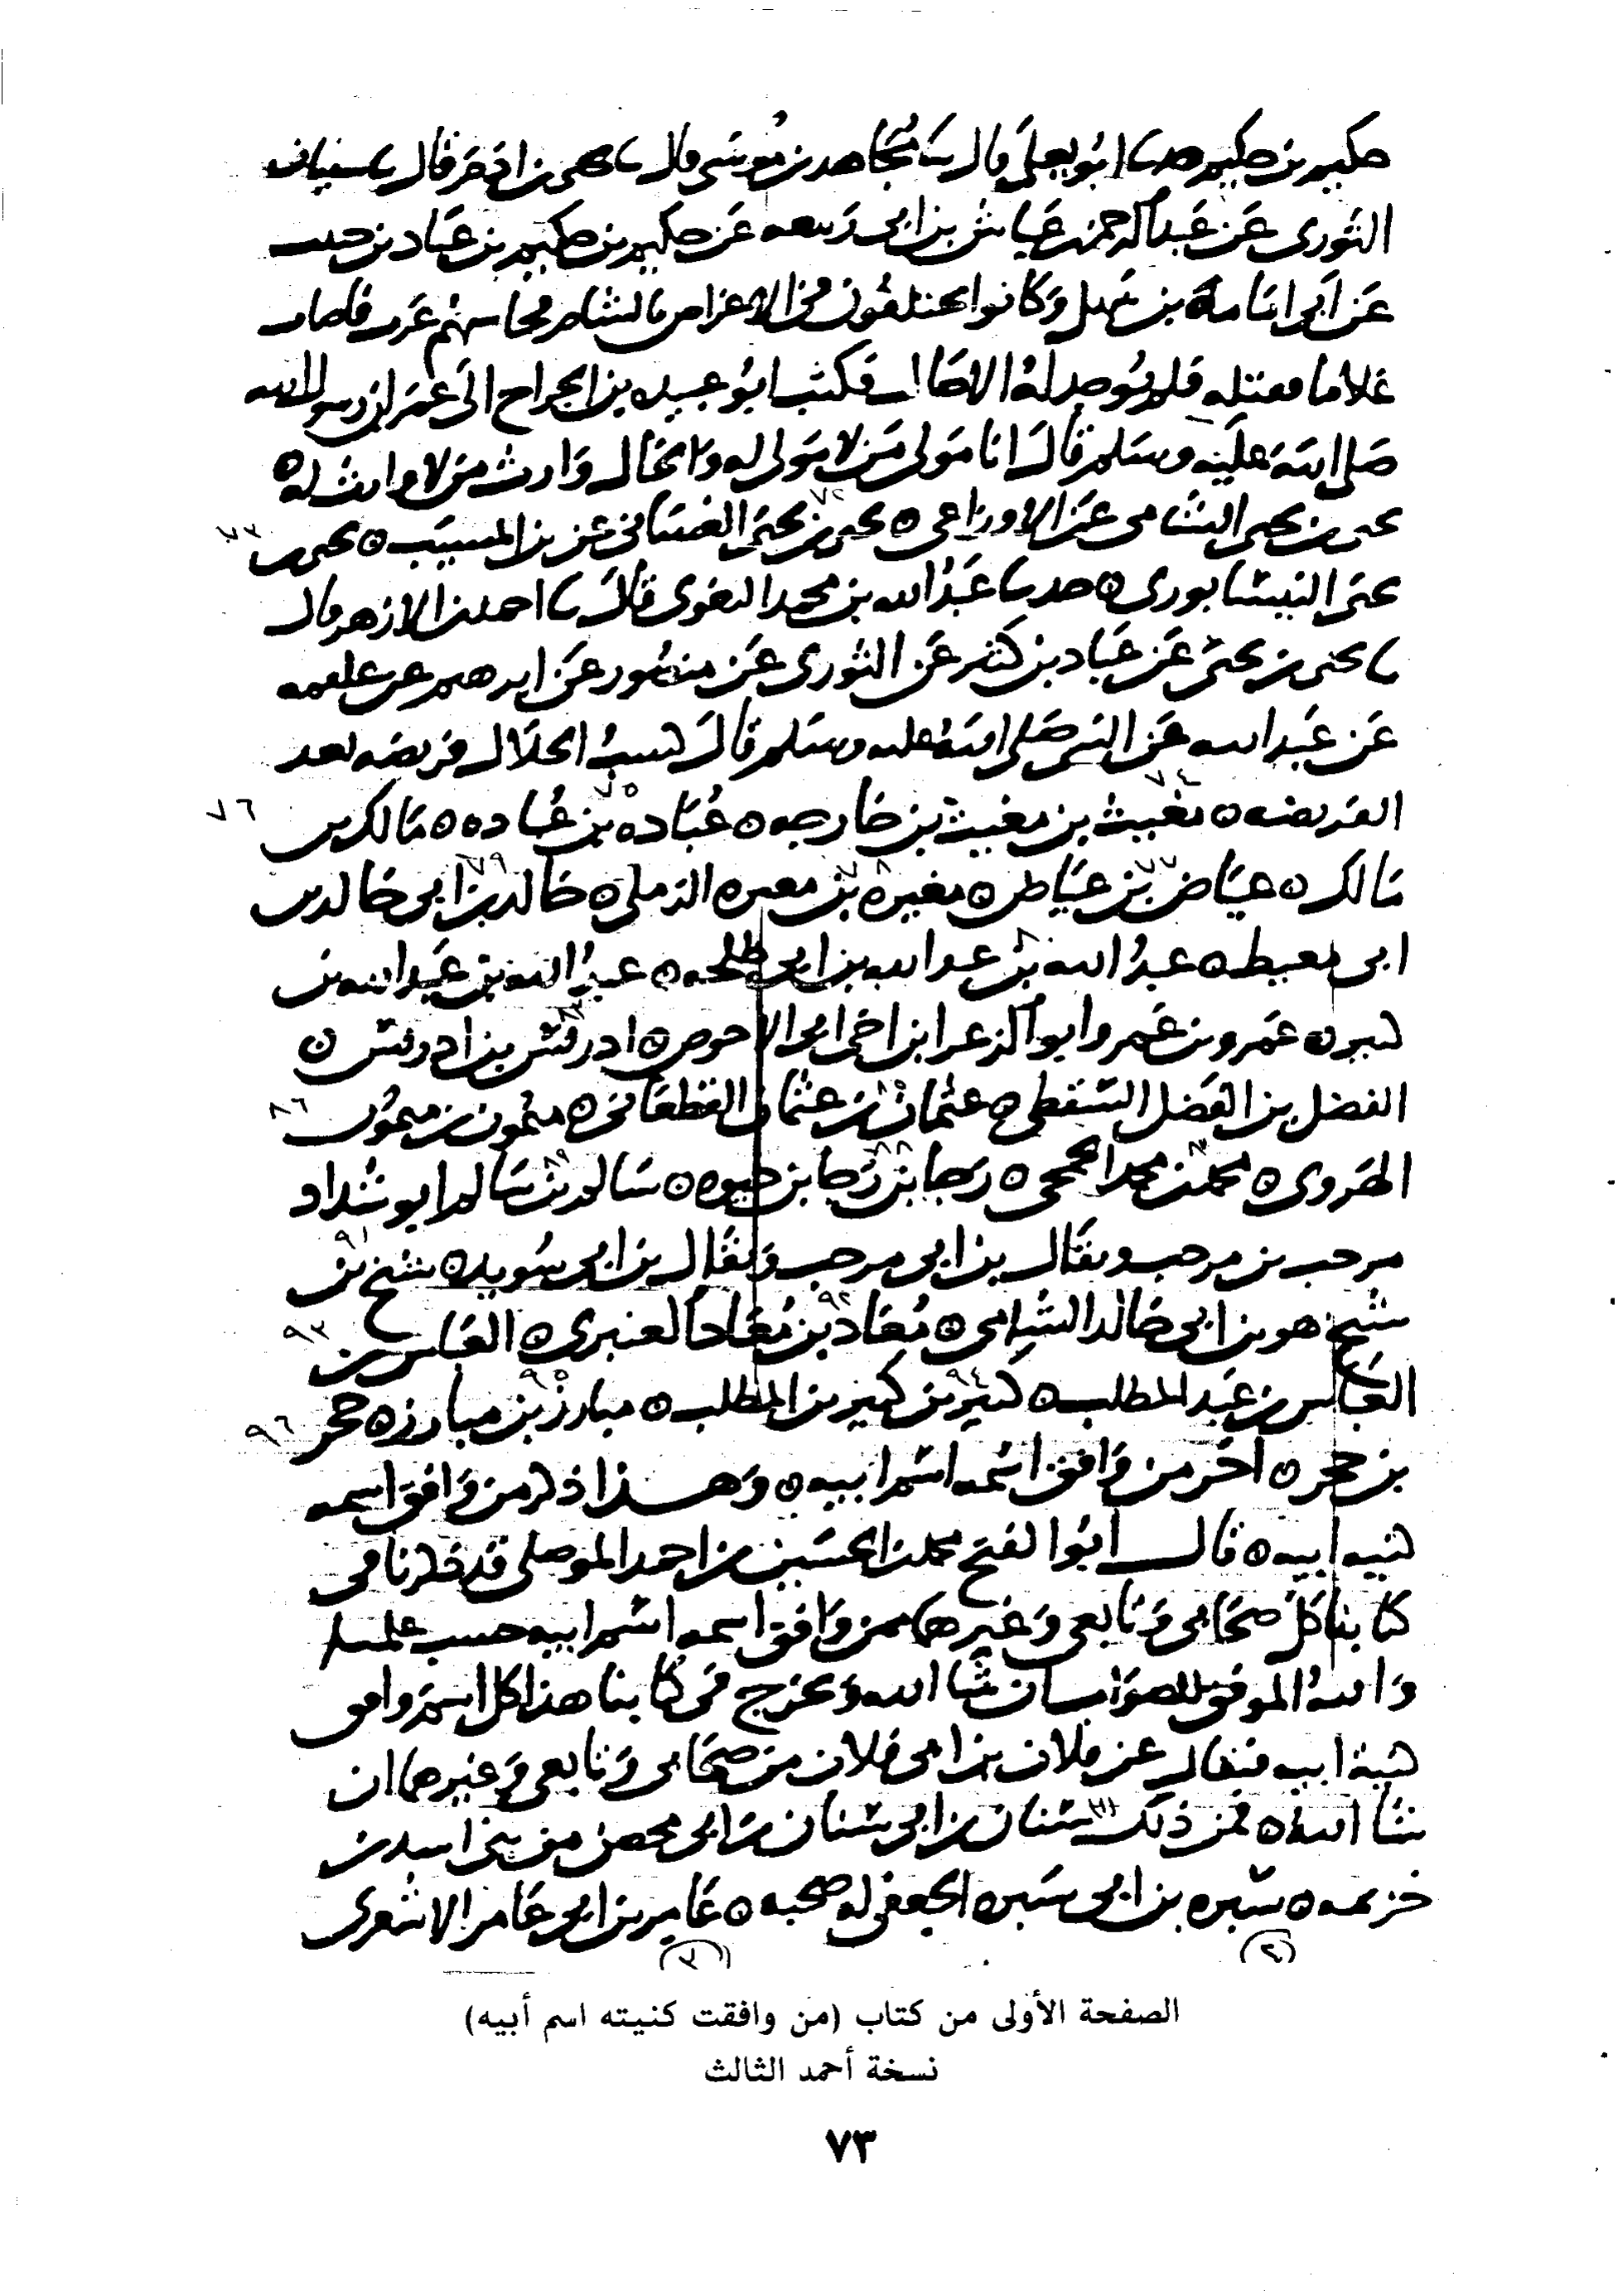 حكيم بن حكيم حدثنا ابو يعلى قال ثنا مجاهد بن موسى قال ثنا يحيى بن ادم قال ثنا سفيان
الثوري عن عبد الرحمن عياش بن ابي ربيعه عن حكيم بن حكيم بن عباد بن حنيف
عن ابي امامة بن سهل وكانوا يختلفون في الاعراض بالشام فجا سهم غرب فاصاب
غلاما فقتله فلم يوجد له الا خال فكتب ابو عبيده بن الجراح الى عمر ان رسول الله
صلى الله عليه وسلم قال انا مولى من لا مولى له والخال وارث من لا وارث له ه
يحيى بن يحيى الشامي عن الاوزاعي ه يحيى بن يحيى الغساني عن بن المسيب ه يحيى بن ٧٣
يحيى النيسابوري ه حدثنا عبد الله بن محمد البغوي قال ثنا احمد بن الازهر قال
ثنا يحيى بن يحيى عن عباد بن كثير عن الثوري عن منصور عن ابرهيم عن علقمه
عن عبد الله عن النبي صلى الله عليه وسلم قال كسب الحلال فريضه بعد
الفريضه ه مغيث بن مغيث بن خارجه ه عباده بن عباده ه مالك بن ٧٦
مالك ه عياض بن عياض ه مغيره بن مغيره الرملي ه خالد بن ابي خالد بن
ابي معيط ه عبد الله بن عبد الله بن ابي طلحه ه عبد الله بن عبد الله بن
ه عمرو بن عمرو ابو الزعرا ابن اخي ابي الاحوص ه ادريس بن ادريس ه
الفضل بن الفضل السقطي ه عثمان بن عثمان الغطفاني ه ميمون بن ميمون ٨٦
الهروي ه محمد بن محمد الجمحي ه رجا بن رجا بن حيوه ه سالم بن سالم ابو شداد
مرحب بن مرحب ويقال بن ابي مرحب ويقال بن ابي سويد ه شيخ بن ٩١
شيخ هو بن ابي خالد الشامي ه معاذ بن معاذ العنبري ه العباس بن ٩٣
العباس بن عبد المطلب ه كثير بن كثير بن المطلب ه مبارز بن مبارز ه حجر ٩٦
بن حجر ه اخر من وافق اسمه اسم ابيه ه وهذا ذكر من وافق اسمه
كنيه ابيه ه قال ابو الفتح محمد بن الحسين بن احمد الموصلي قد ذكرنا في
كتابنا كل صحابي وتابعي وغيرهما ممن وافق اسمه اسم ابيه حسب علمنا
والله الموفق للصواب ان شا الله ونخرج في كتابنا هذا كل اسم وافق
كنية ابيه فيقال عن فلان بن ابي فلان من صحابي وتابعي وغيرهما ان
شا الله ه فمن ذلك سنان بن ابي سنان بن ابي محصن من بني اسد بن
خزيمه ه سبره بن ابي سبره الجعفي له صحبه ه عامر بن ابي عامر الاشعري
(٢) (٣)
الصفحة الأولى من كتاب (من وافقت كنيته اسم أبيه)
نسخة أحمد الثالث
٧٣